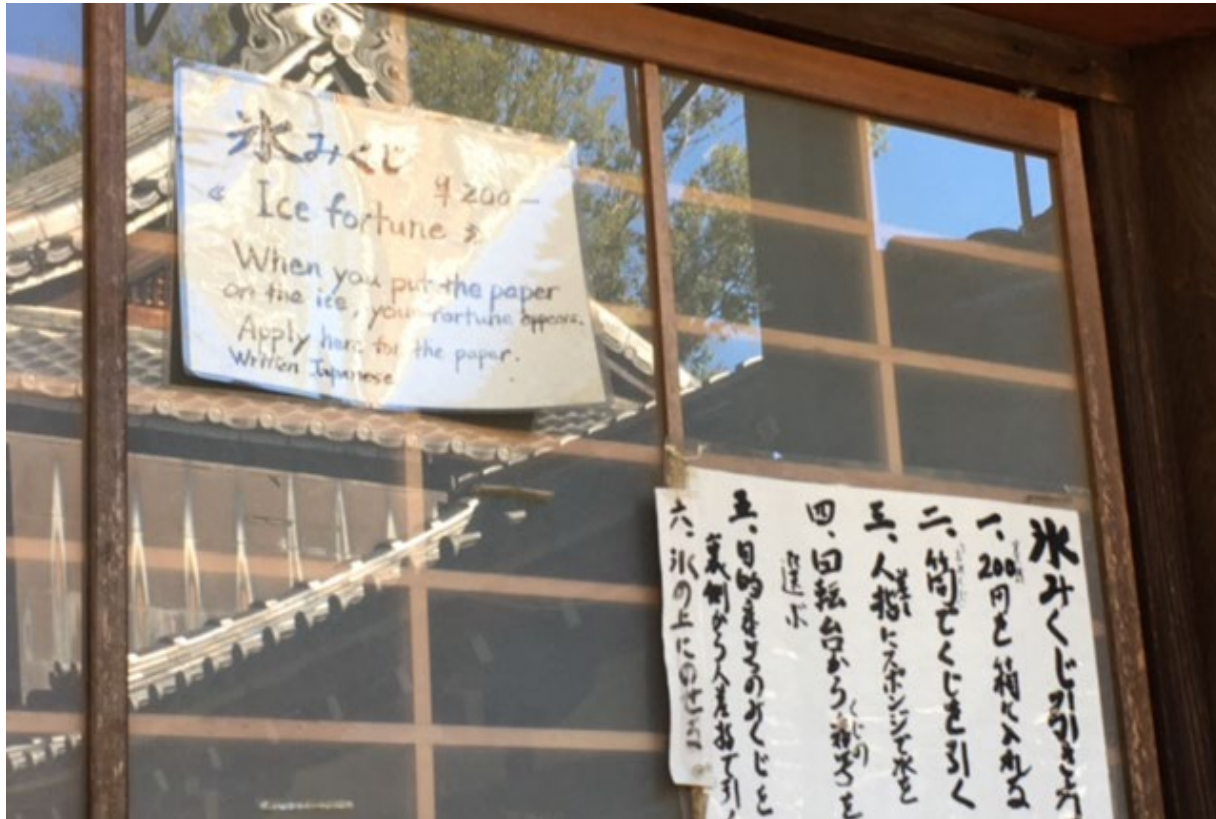 氷みくじ
¥200-
« Ice fortune »
When you put the paper
on the ice, your fortune appears.
Apply here for the paper.
Written Japanese
氷みくじの引き方
一、200円を箱に入れる
二、筒でくじを引く
三、人差指にスポンジで水を
四、回転台からくじの番号を
選ぶ
五、目的番号のみくじを
裏側から人差指で引く
六、氷の上にのせる